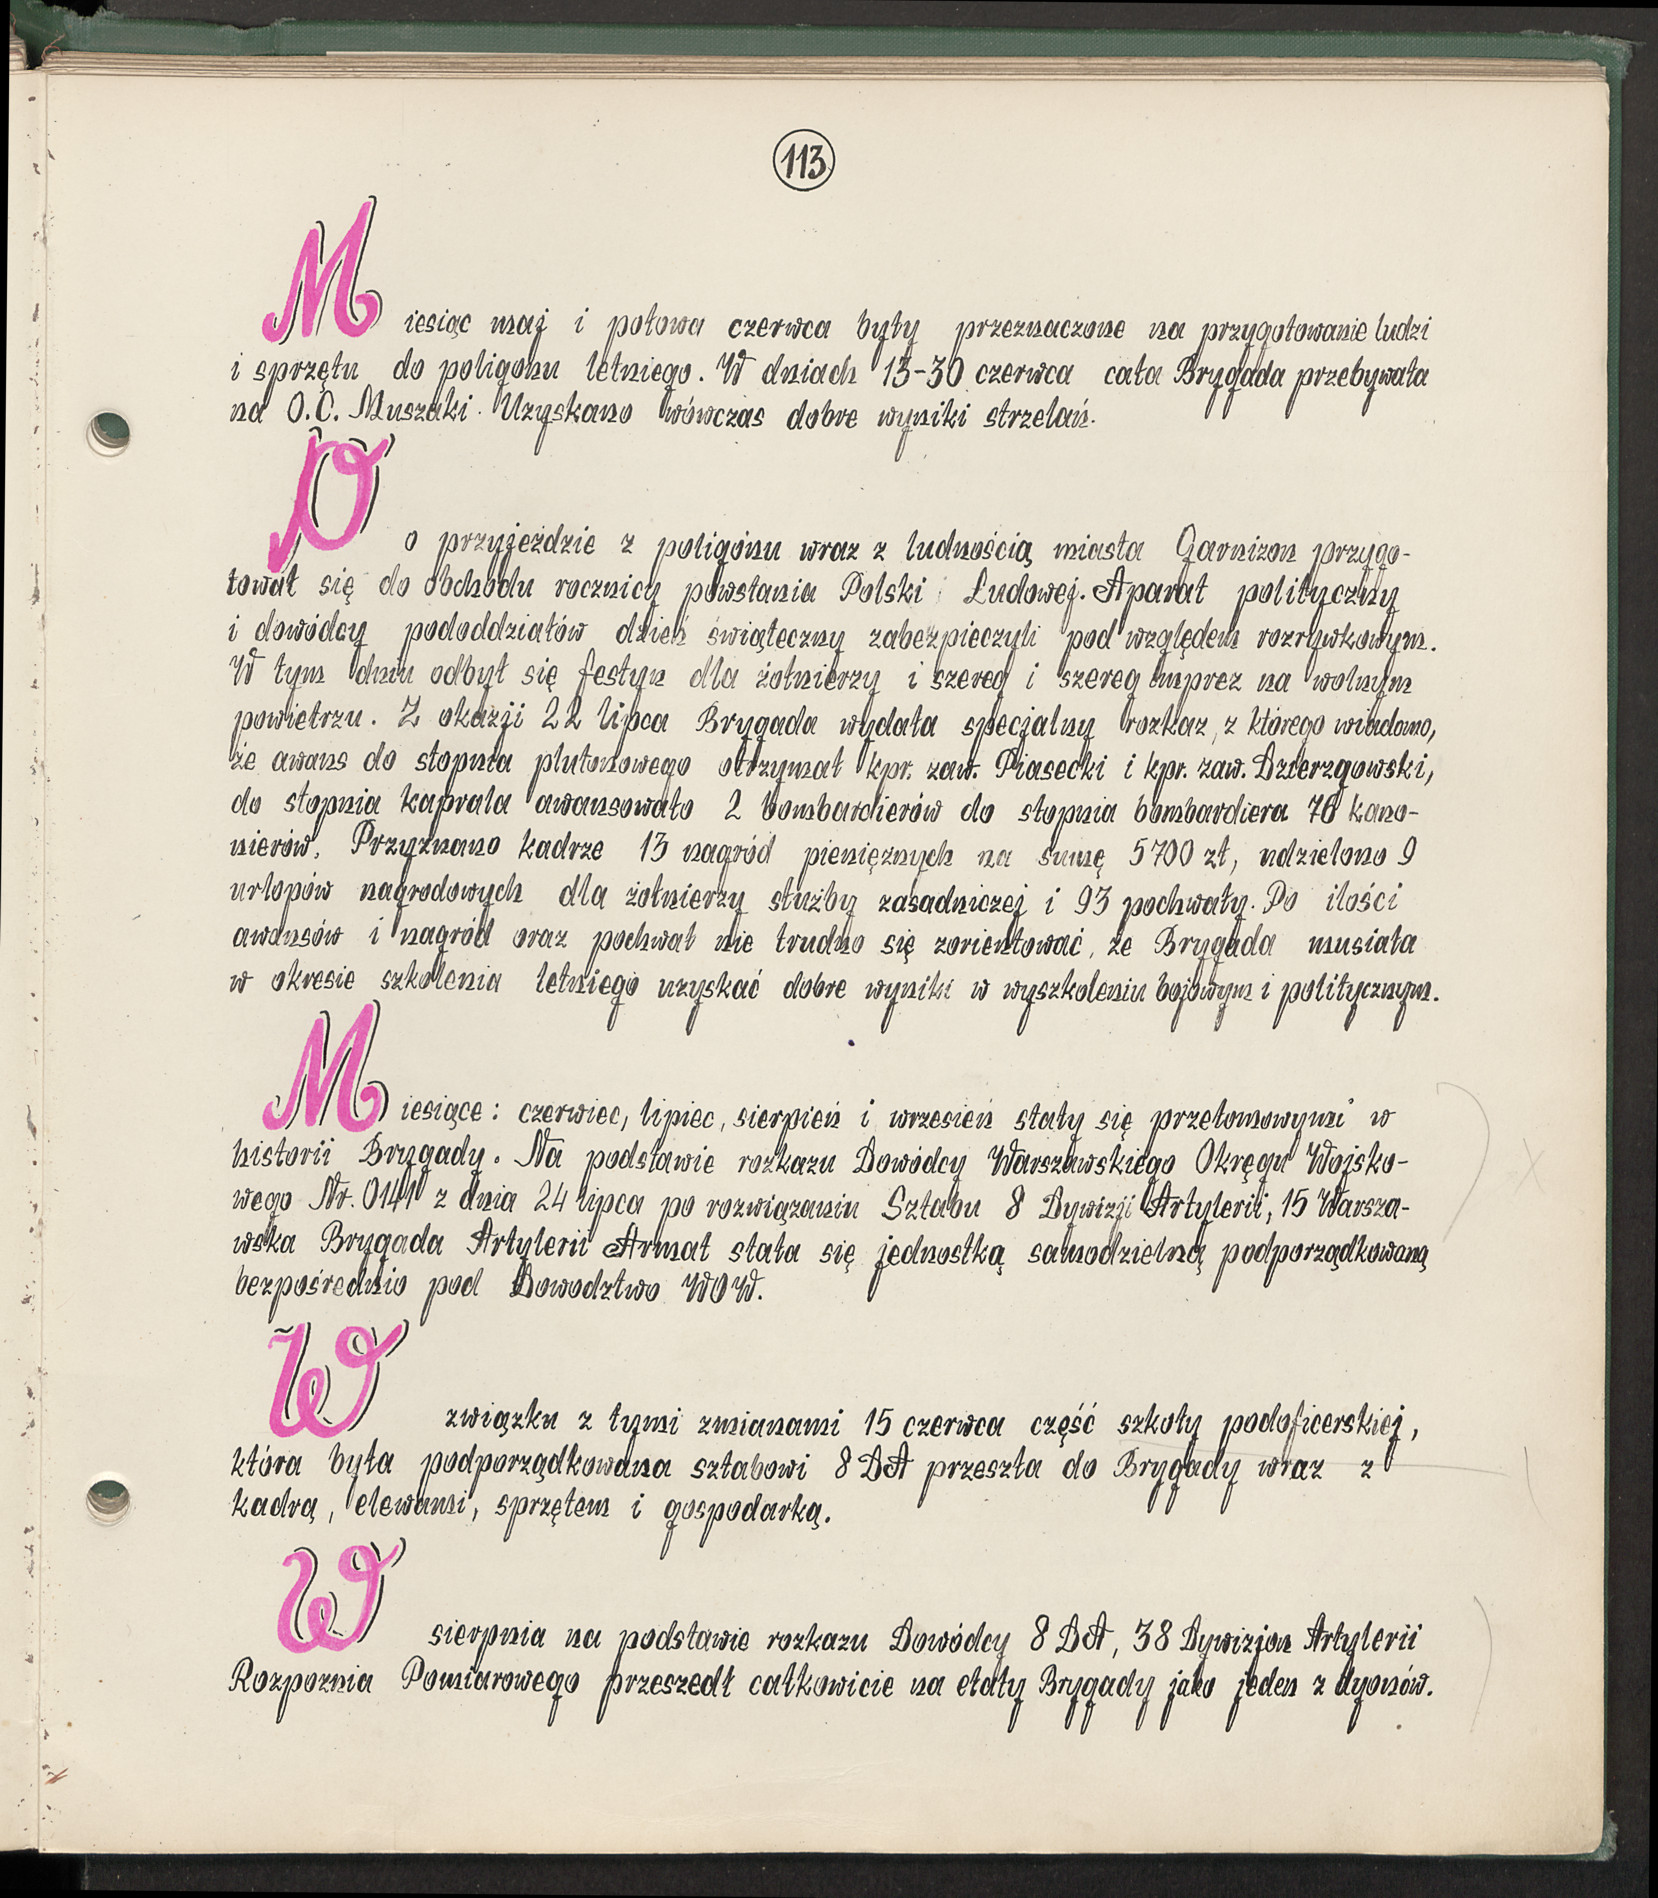 113
Miesiąc maj i połowa czerwca były przeznaczone na przygotowanie ludzi
i sprzętu do poligonu letniego. W dniach 13-30 czerwca cała Brygada przebywała
na O.C. Muszaki. Uzyskano wówczas dobre wyniki strzelań.
Po przyjeździe z poligonu wraz z ludnością miasta Garnizon przygo-
tował się do obchodu rocznicy powstania Polski Ludowej. Aparat polityczny
i dowódcy pododdziałów dzień świąteczny zabezpieczyli pod względem rozrywkowym.
W tym dniu odbył się festyn dla żołnierzy i szereg i szereg imprez na wolnym
powietrzu. Z okazji 22 lipca Brygada wydała specjalny rozkaz, z którego wiadomo,
że awans do stopnia plutonowego otrzymał kpr. zaw. Piasecki i kpr. zaw. Dzierzgowski,
do stopnia kaprala awansowało 2 bombardierów do stopnia bombardiera 76 kano-
nierów. Przyznano kadrze 13 nagród pieniężnych na sumę 5700 zł, udzielono 9
urlopów nagrodowych dla żołnierzy służby zasadniczej i 93 pochwały. Po ilości
awansów i nagród oraz pochwał nie trudno się zorientować, że Brygada musiała
w okresie szkolenia letniego uzyskać dobre wyniki w wyszkoleniu bojowym i politycznym.
Miesiące: czerwiec, lipiec, sierpień i wrzesień stały się przełomowymi w
historii Brygady. Na podstawie rozkazu Dowódcy Warszawskiego Okręgu Wojsko-
wego Nr. 0141 z dnia 24 lipca po rozwiązaniu Sztabu 8 Dywizji Artylerii, 15 Warsza-
wska Brygada Artylerii Armat stała się jednostką samodzielną podporządkowaną
bezpośrednio pod Dowodztwo WOW.
W związku z tymi zmianami 15 czerwca część szkoły podoficerskiej,
która była podporządkowana sztabowi 8 DA przeszła do Brygady wraz z
kadrą, elewami, sprzętem i gospodarką.
W sierpnia na podstawie rozkazu Dowódcy 8 DA, 38 Dywizjon Artylerii
Rozpoznia Pomiarowego przeszedł całkowicie na etaty Brygady jako jeden z dyonów.